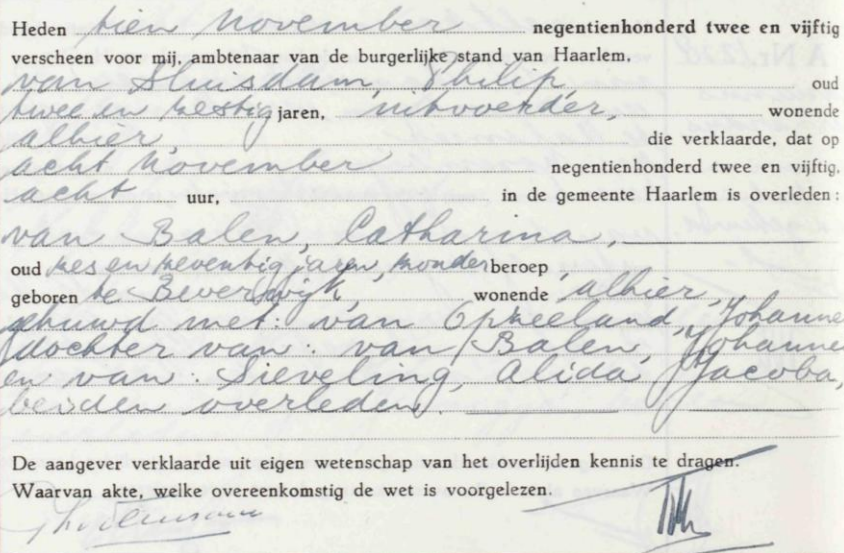 Heden tien November negentienhonderd twee en vijftig
verscheen voor mij, ambtenaar van de burgerlijke stand van Haarlem,
van Sluisdam, Philip, oud
twee en zestig jaren, uitvoerder, wonende
alhier, die verklaarde, dat op
acht November negentienhonderd twee en vijftig.
acht uur, in de gemeente Haarlem is overleden:
van Balen, Catharina,
oud zes en zeventig jaren, zonder beroep,
geboren te Beverwijk, wonende alhier,
gehuwd met: van Opzeeland, Johanne
dochter van: van Balen, Johanne
en van: Sieveling, Alida Jacoba,
beiden overleden.
De aangever verklaarde uit eigen wetenschap van het overlijden kennis te dragen.
Waarvan akte, welke overeenkomstig de wet is voorgelezen.